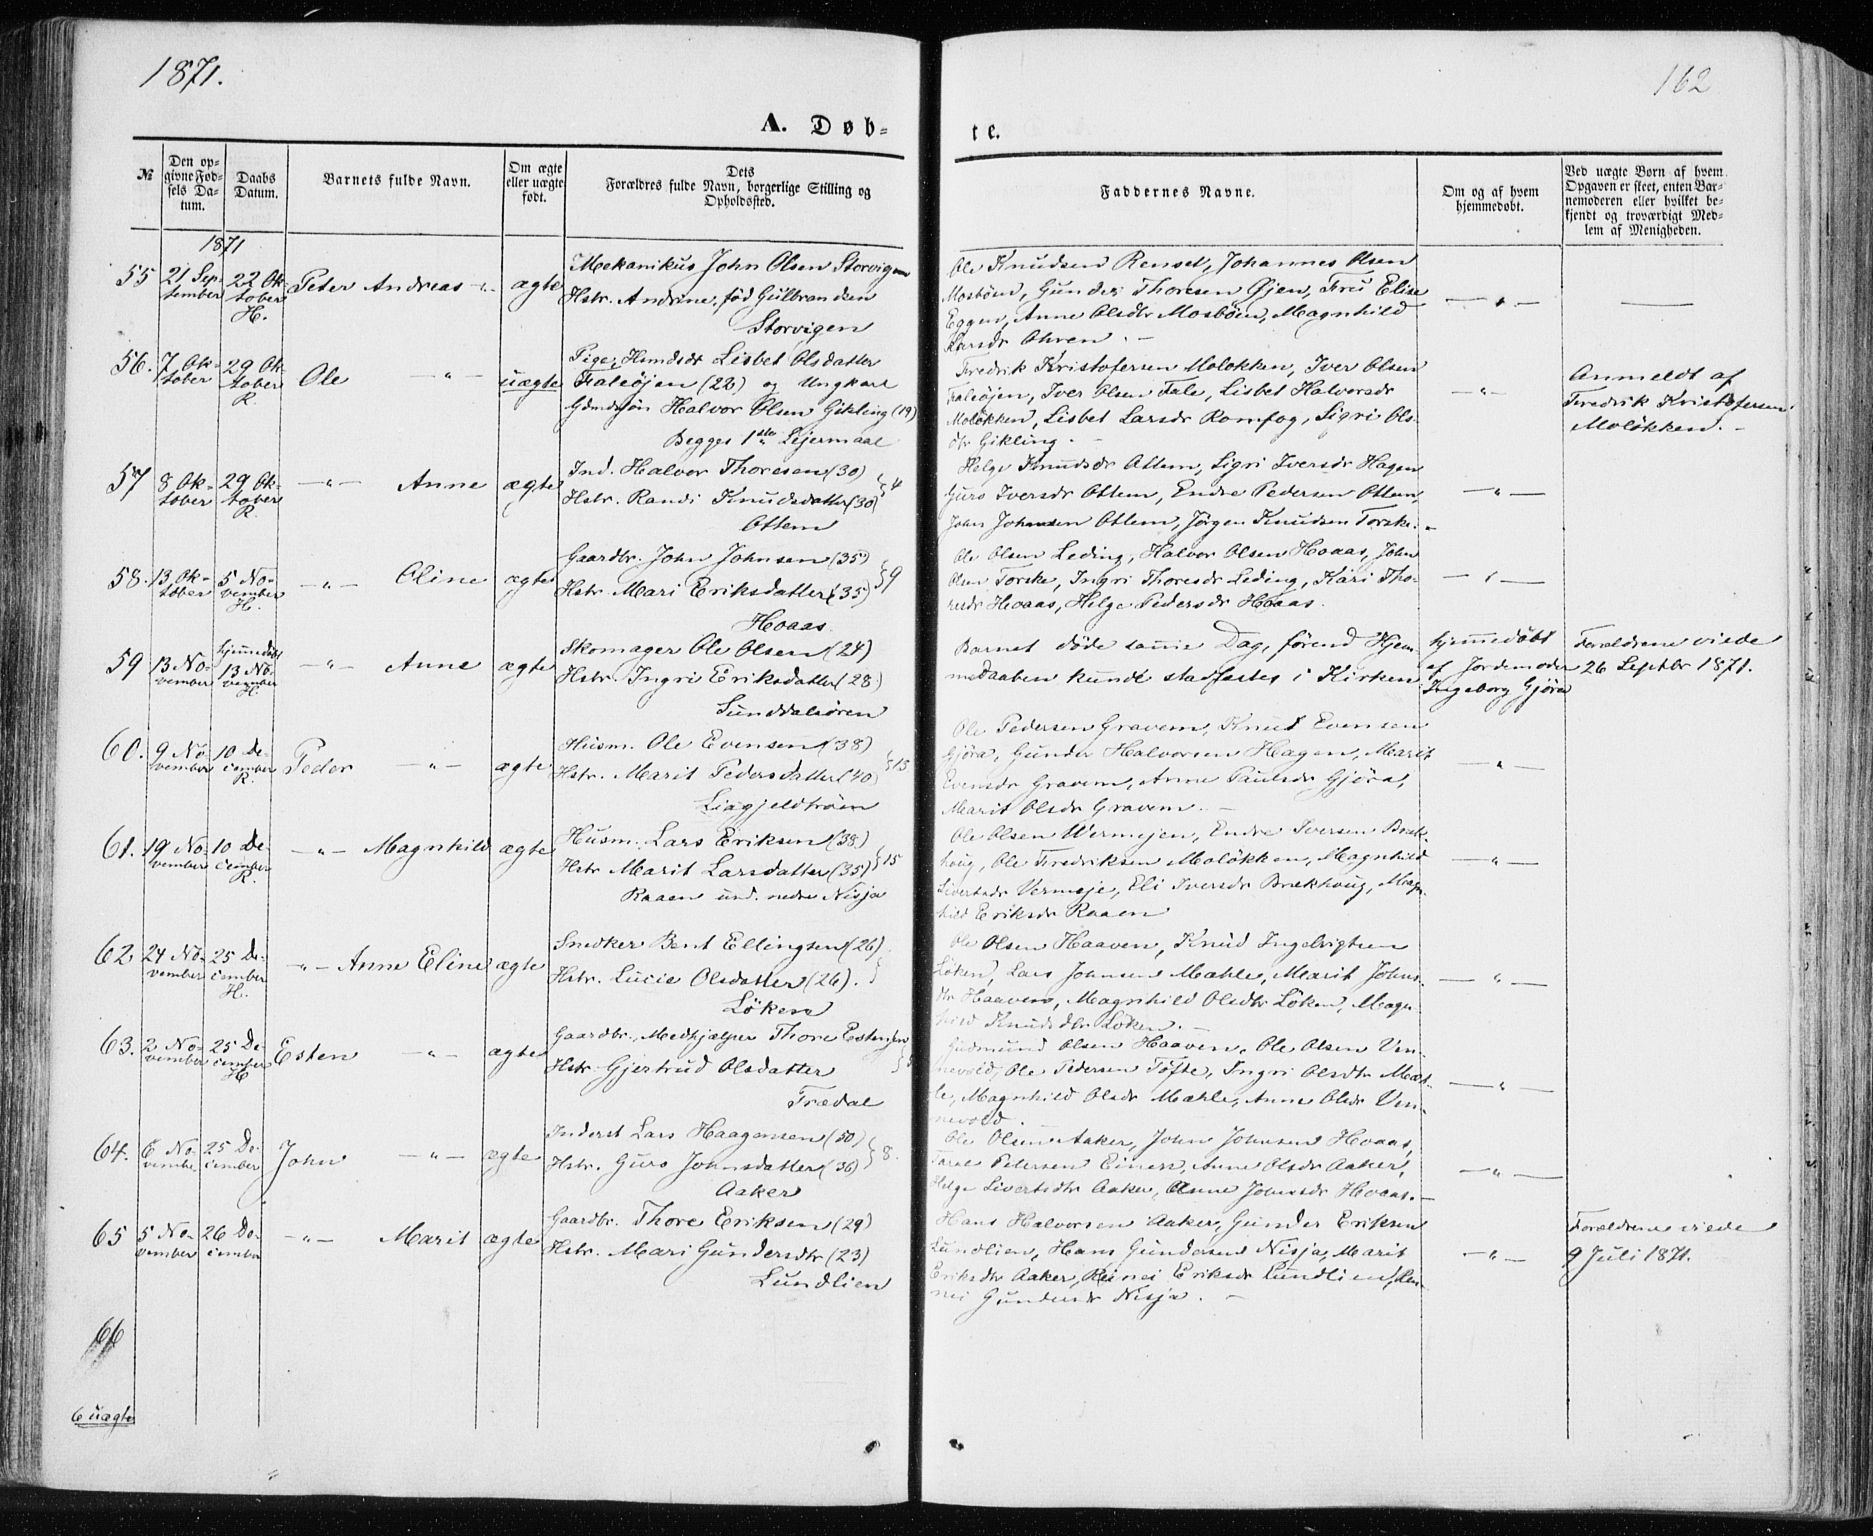 1871.
162
A. Døb=
te.
№
Den opgivne Fødsels Datum.
Daabs Datum.
Barnets fulde Navn.
Om ægte eller uægte født.
Dets Forældres fulde Navn, borgerlige Stilling og Opholdssted.
Faddernes Navne.
Om og af hvem hjemmedøbt.
Ved uægte Børn af hvem Opgaven er skeet, enten Barnemoderen eller hvilket bekjendt og troværdigt Medlem af Menigheden.
1871
55 21 September 22 Oktober H. Peter Andreas -"- ægte
Mekanikus John Olsen Storvigen
Hstr. Andrine, fød Gulbrandsen
Storvigen
Ole Knudsen Renset, Johannes Olsen
Mosbøen, Gunder Thoresen Øien, Fru Elise
Eggen, Anne Olsdtr Mosbøen, Magnhild
Larsdr Ohren. -
— " —
56. 7 Oktober 29 Oktober R. Ole — " — uægte
Pige, Hmdsdr Lisbet Olsdatter
Faleøjen (22) og Ungkarl
Gdmdssøn Halvor Olsen Gikling (19)
Begges 1ste Lejermaal
Fredrik Kristofersen Moløkken, Iver Olsen
Faleøjen, Iver Olsen Fale, Lisbet Halvorsdr
Moløkken, Lisbet Larsdr Romfog, Sigri Ols-
dtr Gikling. -
— " —
Anmeldt af
Fredrik Kristofersen
Moløkken. -
57 8 Oktober 29 Oktober R. — " — Anne ægte
Ind. Halvor Thoresen (30)
Hstr. Randi Knudsdatter (30) } 4
Ottem
Helge Knudsdr Ottem, Sigri Iversdr Hagen
Guro Iversdr Ottem, Endre Pedersen Ottem,
John Johnsen Ottem, Jørgen Knudsen Torske. -
— " —
58. 13 Oktober 5 November H. — " — Oline ægte
Gaardbr. John Johnsen (35)
Hstr. Mari Eriksdatter (35) } 9
Hoaas
Ole Olsen Leding, Halvor Olsen Hoaas, John
Olsen Torske, Ingri Thoresdr Leding, Kari Tho-
resdr Hoaas, Helge Pedersdr Hoaas.
— " —
59 13 November hjemmedøbt 13 November H. — " — Anne ægte
Skomager Ole Olsen (24)
Hstr. Ingri Eriksdatter (28)
Sunddalsøren
Barnet døde samme Dag, førend Hjem-
medaaben kunde stadfæstes i Kirken
hjemmedøbt
af Jordemoder
Ingeborg Gjøra
Forældrene viede
26 Septbr 1871.
60. 9 November 10 December R. Peder — " — ægte
Husm. Ole Evensen (38)
Hstr. Marit Pedersdatter (40) } 13
Liagjeldtrøen
Ole Pedersen Gravem, Knud Evensen
Gjøra, Gunder Halvorsen Hagen, Marit
Evensdr Gravem, Anne Paulsdr Gjøra,
Marit Olsdr Gravem. -
— " —
61. 19 November 10 December R. — " — Magnhild ægte
Husm. Lars Eriksen (38)
Hstr Marit Larsdatter (35) } 15
Raaen und. nedre Nisja
Ole Olsen Wermejen, Endre Iversen Bræk-
houg, Ole Fredriksen Moløkken, Magnhild
Sivertsdr Vermeje, Eli Iversdr Brækhoug, Magn-
hild Eriksdr Raaen
— " —
62 24 November 25 December H. — " — Anne Eline ægte
Snedker Bent Ellingsen (26)
Hstr. Lucie Olsdatter (26). }
Løken
Ole Olsen Haaven, Knud Ingebrigtsen
Løken, Lars Johnsen Mæhle, Marit Johns-
dtr Haaven, Magnhild Olsdtr Løken, Magn-
hild Knudsdtr Løken. -
— " —
63. 2 November 25 December H Esten — " — ægte
Gaardbr. Medhjælper Thore Estensen
Hstr Gjertrud Olsdatter }
Trædal
Gudmund Olsen Haaven, Ole Olsen Ven-
nevold, Ole Pedersen Tofte, Ingri Olsdtr Mæh-
le, Magnhild Olsdr Mæhle, Anne Olsdr Ven-
nevold.
— " —
64. 6 November 25 December John — " — ægte
Inderst Lars Haagensen (50)
Hstr. Guro Johnsdatter (36) } 8.
Aaker
Ole Olsen Aaker, John Johnsen Hoaas,
Petersen Anne Olsdr Aaker,
Helge Sivertsdtr Aaker, Anne Johnsdr Hoaas. -
— " —
65 5 November 26 December — " — Marit ægte
Gaardbr. Thore Eriksen (29)
Hstr. Mari Gundersdtr (23)
Lundlien
Hans Halvorsen Aaker, Gunder Eriksen
Lundlien, Hans Gundersen Nisja, Marit
Eriksdtr Aaker, Eriksdr Lundlien,
Gundersdr Nisja. -
— " —
Forældrene viede
9 Juli 1871.
66
6 uægte